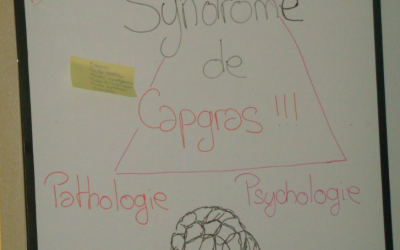 Syndrome
de
Capgras !!!
Pathologie Psychologie